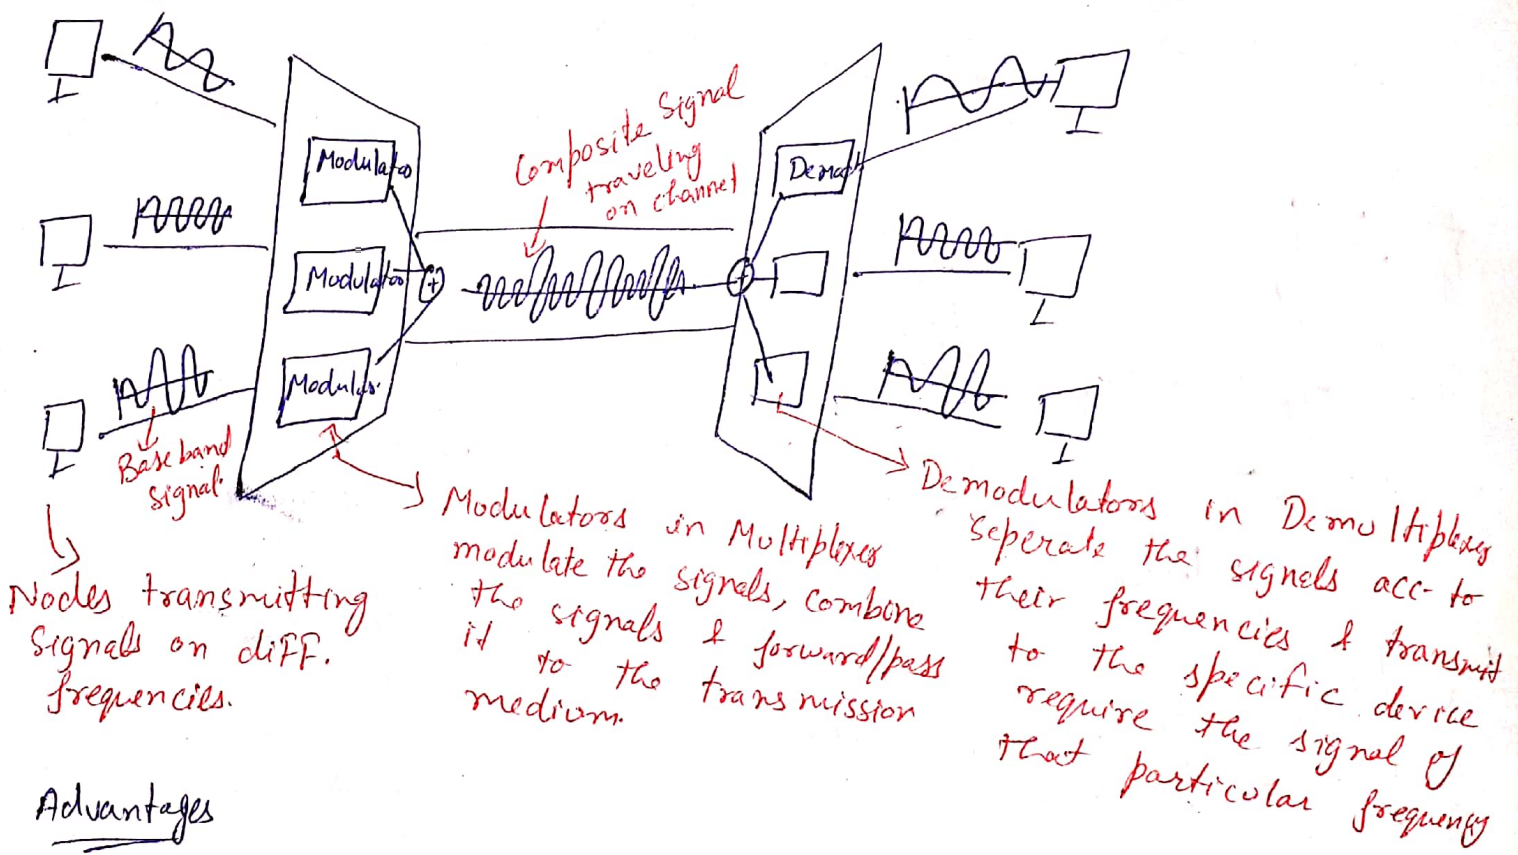 Modulato
Modulator
Modulas.
Composite Signal
traveling
on channel
Demod
Base band
Signal.
Nodes transmitting
Signals on diff.
frequencies.
Modulators in Multiplexer
modulate the signals, combine
the signals & forward/pass
it to the transmission
medium.
Demodulators in Demultiplexer
seperate the signels acc- to
their frequencies & transmit
to the specific device
require the signal of
that particular frequency
Advantages